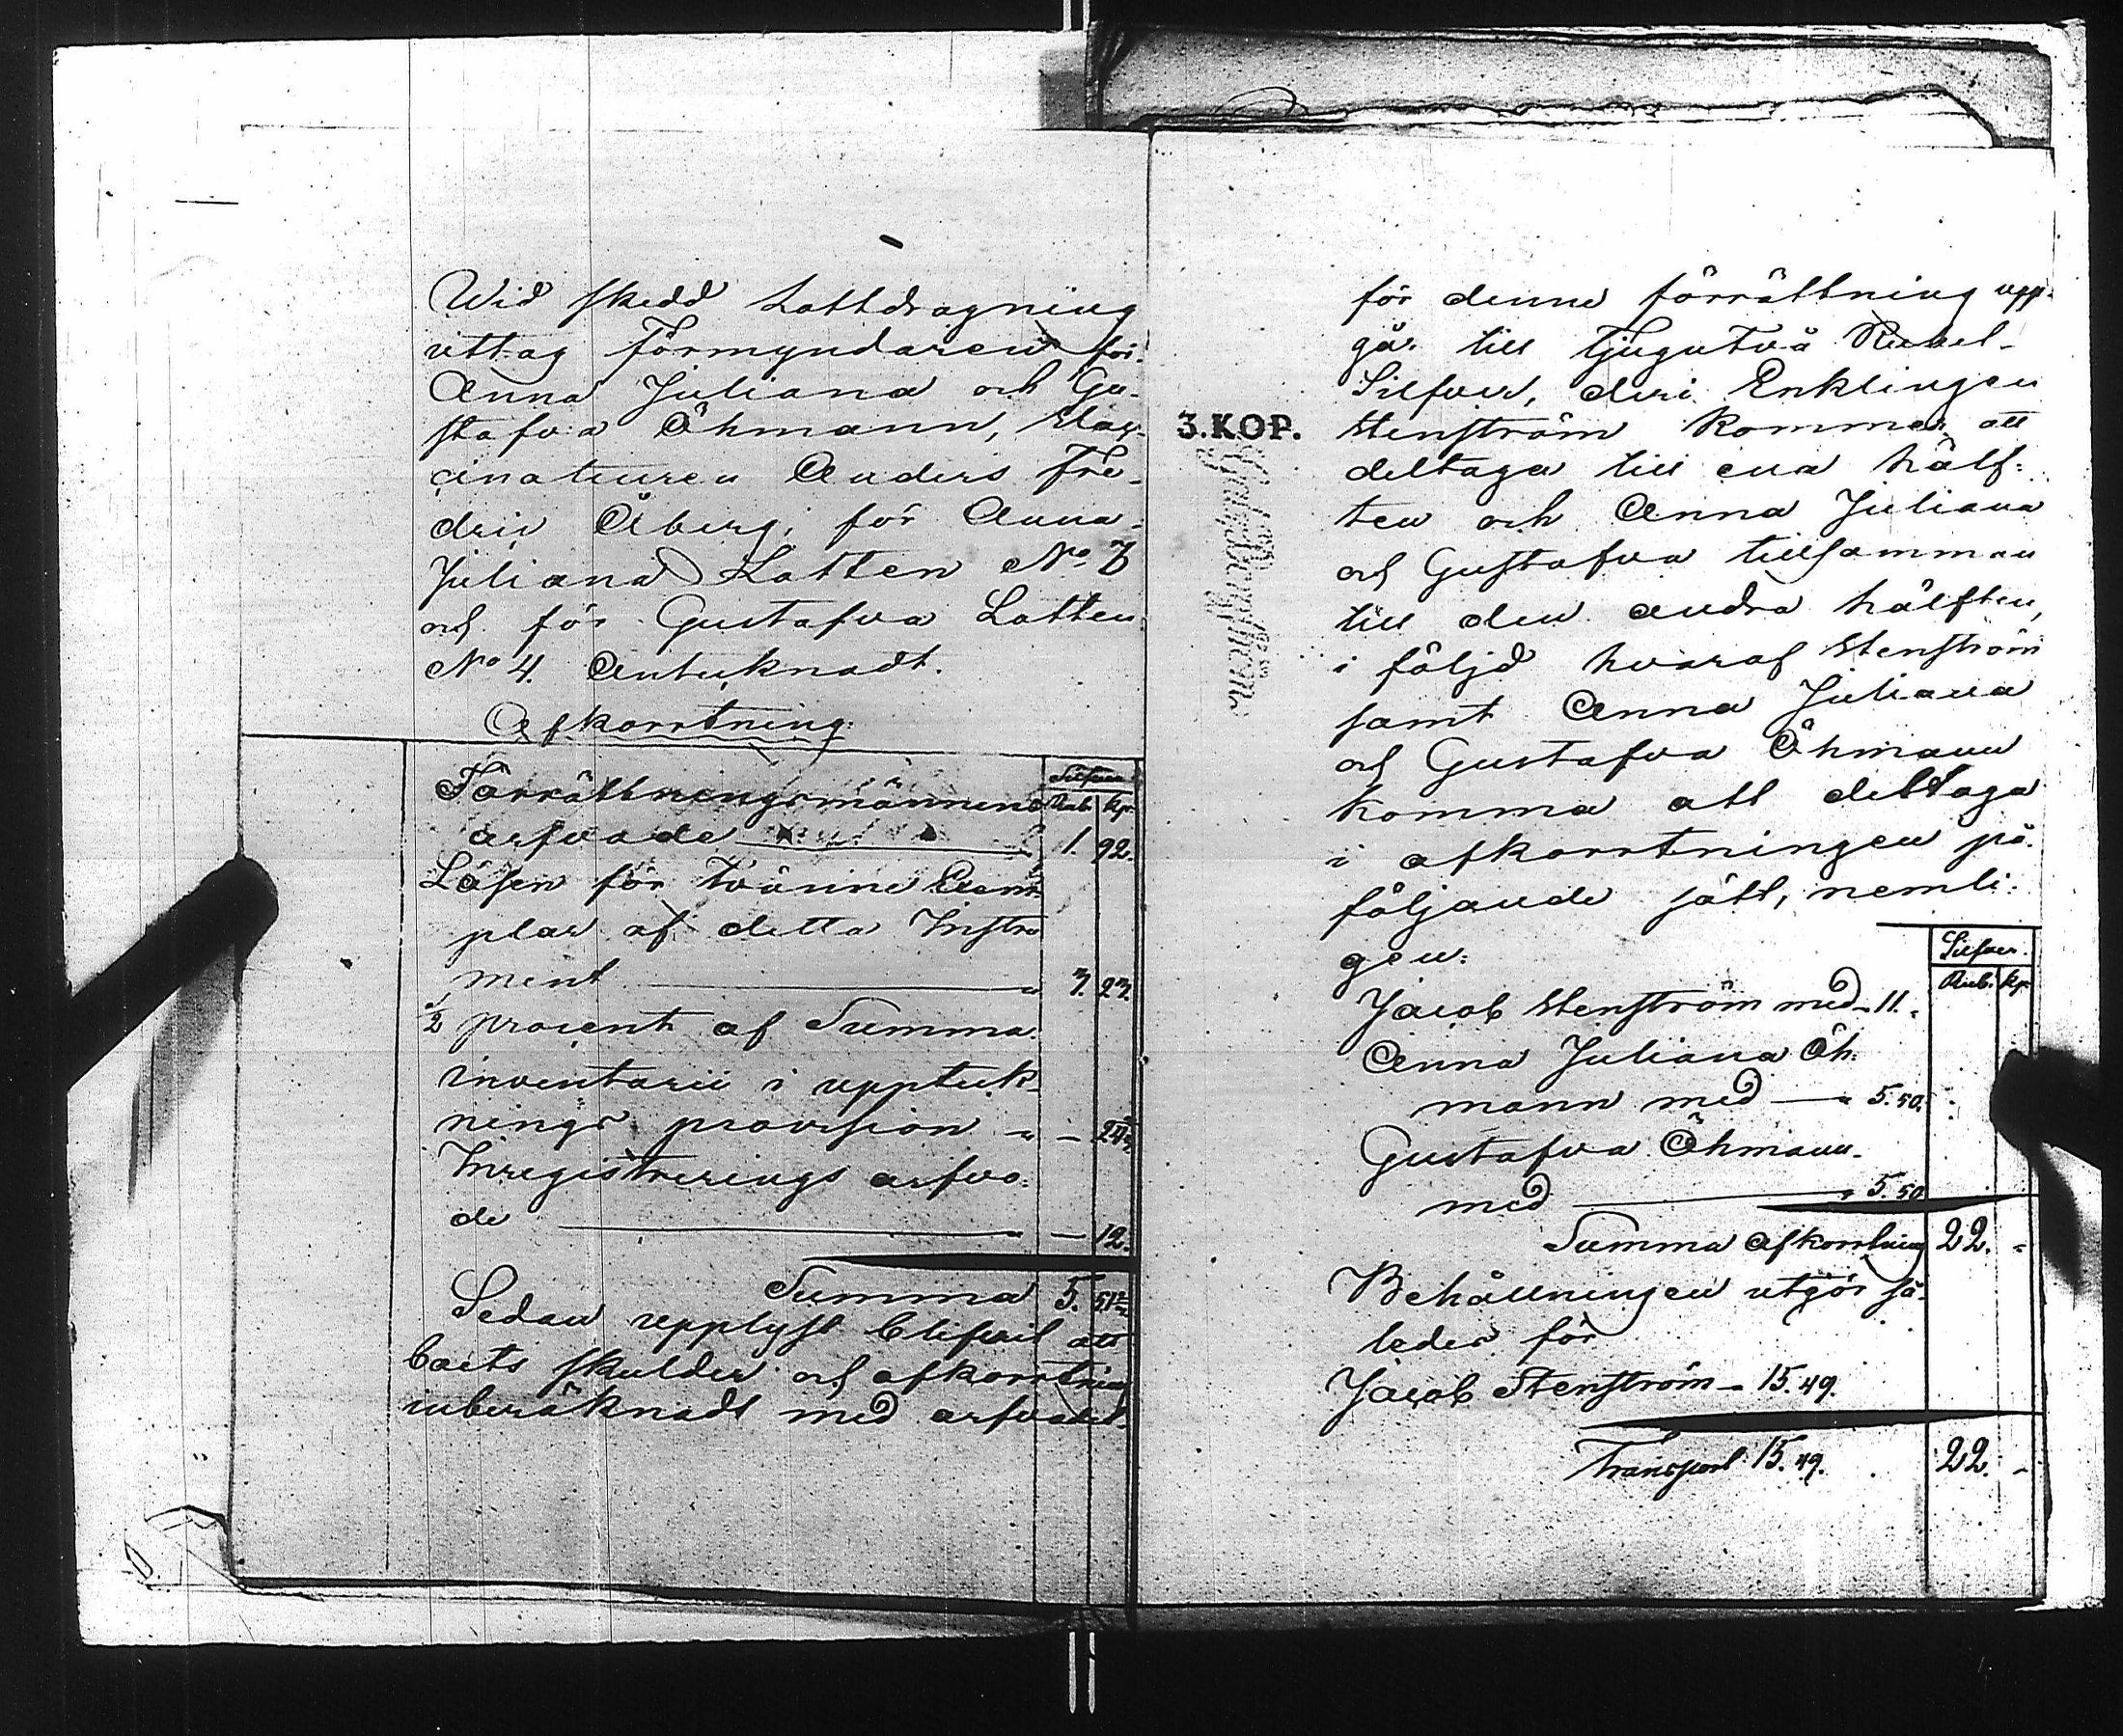 Wid skedd Lottdragning
uttag Förmyndaren för
Anna Juliana och Gu-
stafva Öhmann,
Anders Fre-
dric Åberg, för Anna
Juliana Lotten No 3
och för Gustafva Lotten
No 4. Anteknadt.
Afkorrtning:
Silfver
Rub. Kp.
Förrättningsmännens
arfvode 1. 92.
Lösen för tvänne Exem-
plar af detta Instru
ment 3. 23.
1/2 procent af Summa
inventarii i upptek-
nings provision " — 24 2/7
Inregistrerings arfvo-
de " — 12.
Summa 5. 51 2/7
Sedan upplyst blifvit att
boets skulder och afkorrtning
inberäknadt med arfvodet
3. KOP.
för denna förrättning upp-
går till tjugutvå Rubel
Silfver, deri Enklingen
Stenström kommer att
deltaga till ena hälf-
ten och Anna Juliana
och Gustafva tillsamman
till den andra hälften,
i följd hvaraf Stenström
samt Anna Juliana
och Gustafva Öhmann
komma att deltaga
i afkorrtningen på
följande sätt, nemli-
gen:
Silfver.
Rub. Kp.
Jacob Stenström med " 11. "
Anna Juliana Öh-
mann med " 5. 50.
Gustafva Öhmann
med " 5. 50
Summa afkorrtning 22. "
Behållningen utgör så-
ledes för
Jacob Stenström " 15. 49.
Transport 15. 49. 22. "